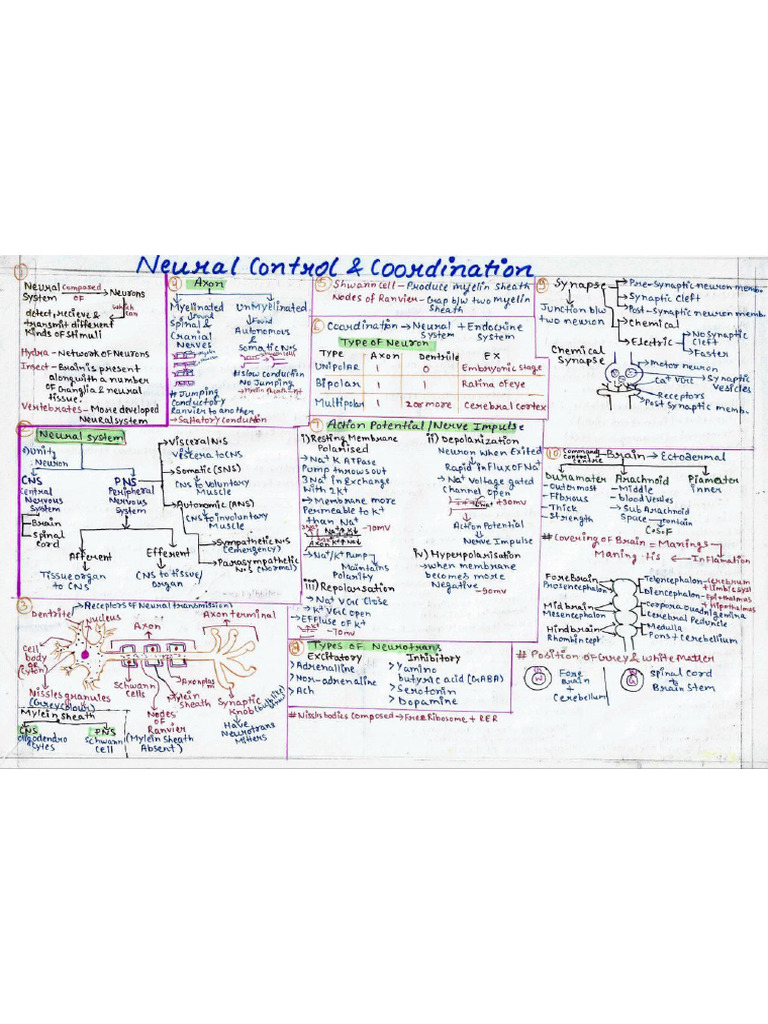 Neural Control & Coordination
①
Neural composed of → Neurons
System
which can
detect, recieve &
transmit different
Kinds of stimuli
Hydra - Network of Neurons
Insect - Brain is present
along with a number
of Ganglia & neural
tissue.
Vertebrates - More developed
Neural system
② Neural system
Unity
Neuron
CNS
Central
Nervous
System
Brain
Spinal
cord
PNS
Peripheral
Nervous
System
Visceral N.S
Viscera to CNS
Somatic (SNS)
CNS to voluntary
Muscle
Autonomic (ANS)
CNS to involuntary
Muscle
Sympathetic N.S
(emergency)
Parasympathetic
N.S (Normal)
Afferent
Tissue organ
to CNS
Efferent
CNS to tissue/
organ
③
Receptors of Neural transmission
Dentrite
Nucleus
Axon
Axon terminal
Cell
body
or
Cyton
Nissles granules
(Grey colour)
Schwann
Cells
Nodes
of
Ranvier
(Mylein Sheath
Absent)
Axoplasm
Mylein
sheath
Synaptic
Knob
Have
Neurotrans
mitters
Mylein sheath
CNS
oligodendro
cytes
PNS
Schwann
cell
④ Axon
Myelinated
found
Spinal &
Cranial
Nerves
# Jumping
Conductory
Ranvier to another
→ Saltatory conduction
UnMyelinated
found
Autonomous
&
Somatic N.S
# slow conduction
No Jumping
⑤ Shwann Cell - Produce myelin sheath
Nodes of Ranvier - Gap b/w two Myelin
sheath
⑥ Coordination → Neural + Endocrine
System System
Type of Neuron
Type Axon Dentrile Ex
Unipolar 1 0 Embryonic stage
Bipolar 1 1 Ratina of eye
Multipolar 1 2 or more Cerebral cortex
Action Potential/Nerve Impulse
i) Resting Membrane
Polarised
→ Na⁺ K ATPase
Pump throws out
3Na⁺ in Exchange
With 2K⁺
→ Membrane more
Permeable to K⁺
than Na⁺
-70mv
→ Na⁺/K⁺ Pump
Maintains
Polarity
iii) Repolarsation
→ Na⁺ VGC Close
→ K⁺ VGC open
→ Efflux of K⁺
-70mv
ii) Depolarization
Neuron when Exited
Rapid influx of Na⁺
→ Na⁺ Voltage gated
Channel open
+30mv
Action Potential
Nerve Impulse
iv) Hyperpolarisation
→ when membrane
becomes more
Negative
-90mv
⑧ Types of Neurotrans
Excitatory
> Adrenalline
> Nor-adrenaline
> Ach
Inhibitory
> γ amino
butyric acid (GABA)
> Serotorin
> Dopamine
# Nissls bodies composed → Free Ribosome + RER
Synapse
Junction b/w
two neuron
Pre-Synaptic neuron memb.
Synaptic Cleft
Post-Synaptic neuron memb.
Chemical
Electric
No Synaptic
Cleft
Faster
Chemical
Synapse
Motor neuron
Ca⁺ VGC
Synaptic
Vesicles
Receptors
Post Synaptic memb.
⑩ Command
Control
Centric
Brain → Ectodermal
Duramater
- Outermost
- Fibrous
- Thick
- Strength
Arachnoid
- Middle
- blood Verles
→ Sub Arachnoid
Space → contain
C.S.F
Piamater
inner
# Covering of Brain = Manings
Maning tis ← Inflamation
ForeBrain
Prosencephalon
Midbrain
Mesencephalon
Hindbrain
Telencephalon → Cerebrum
+ limbic syst
Diencephalon - Epithalmus
+ Hipothalmus
Corpora quadrigemina
Cerebral Peduncle
Medulla
Pons + Cerebellum
# Position of Grey & White Matter
Fore
Brain
+
Cerebellum
Spinal Cord
to
Brain Stem